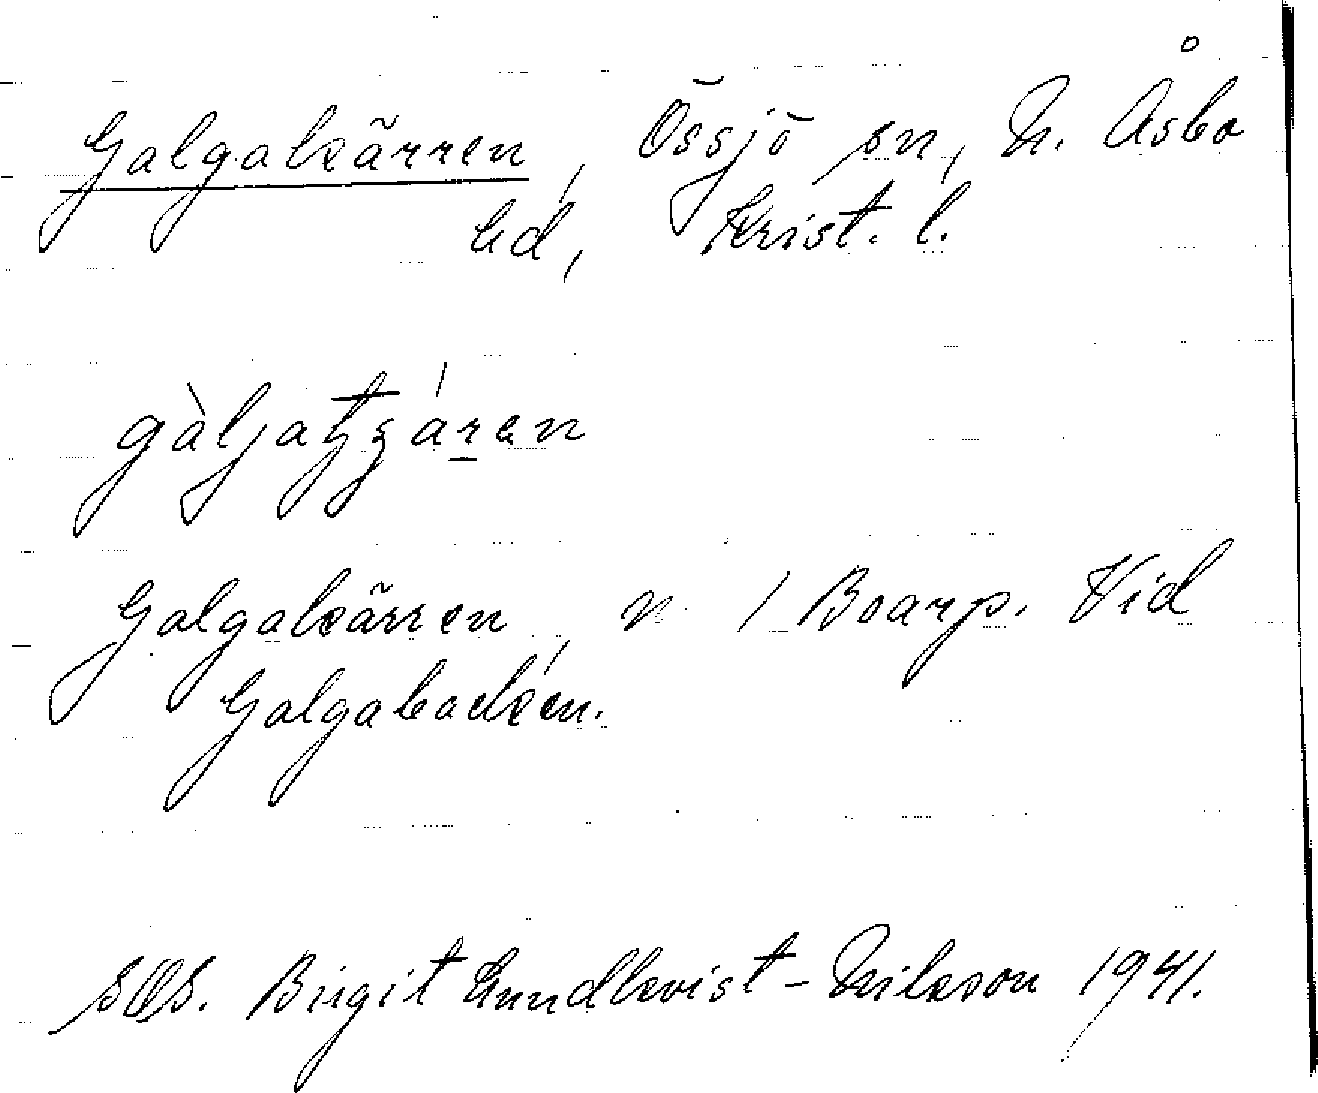 Galgakärren, Össjö sn, N. Åsbo
hd, Krist. l.
Galgakärren, n 1 Boarp. Vid
Galgabacken.
Birgit Lundkvist-Nilsson 1941.